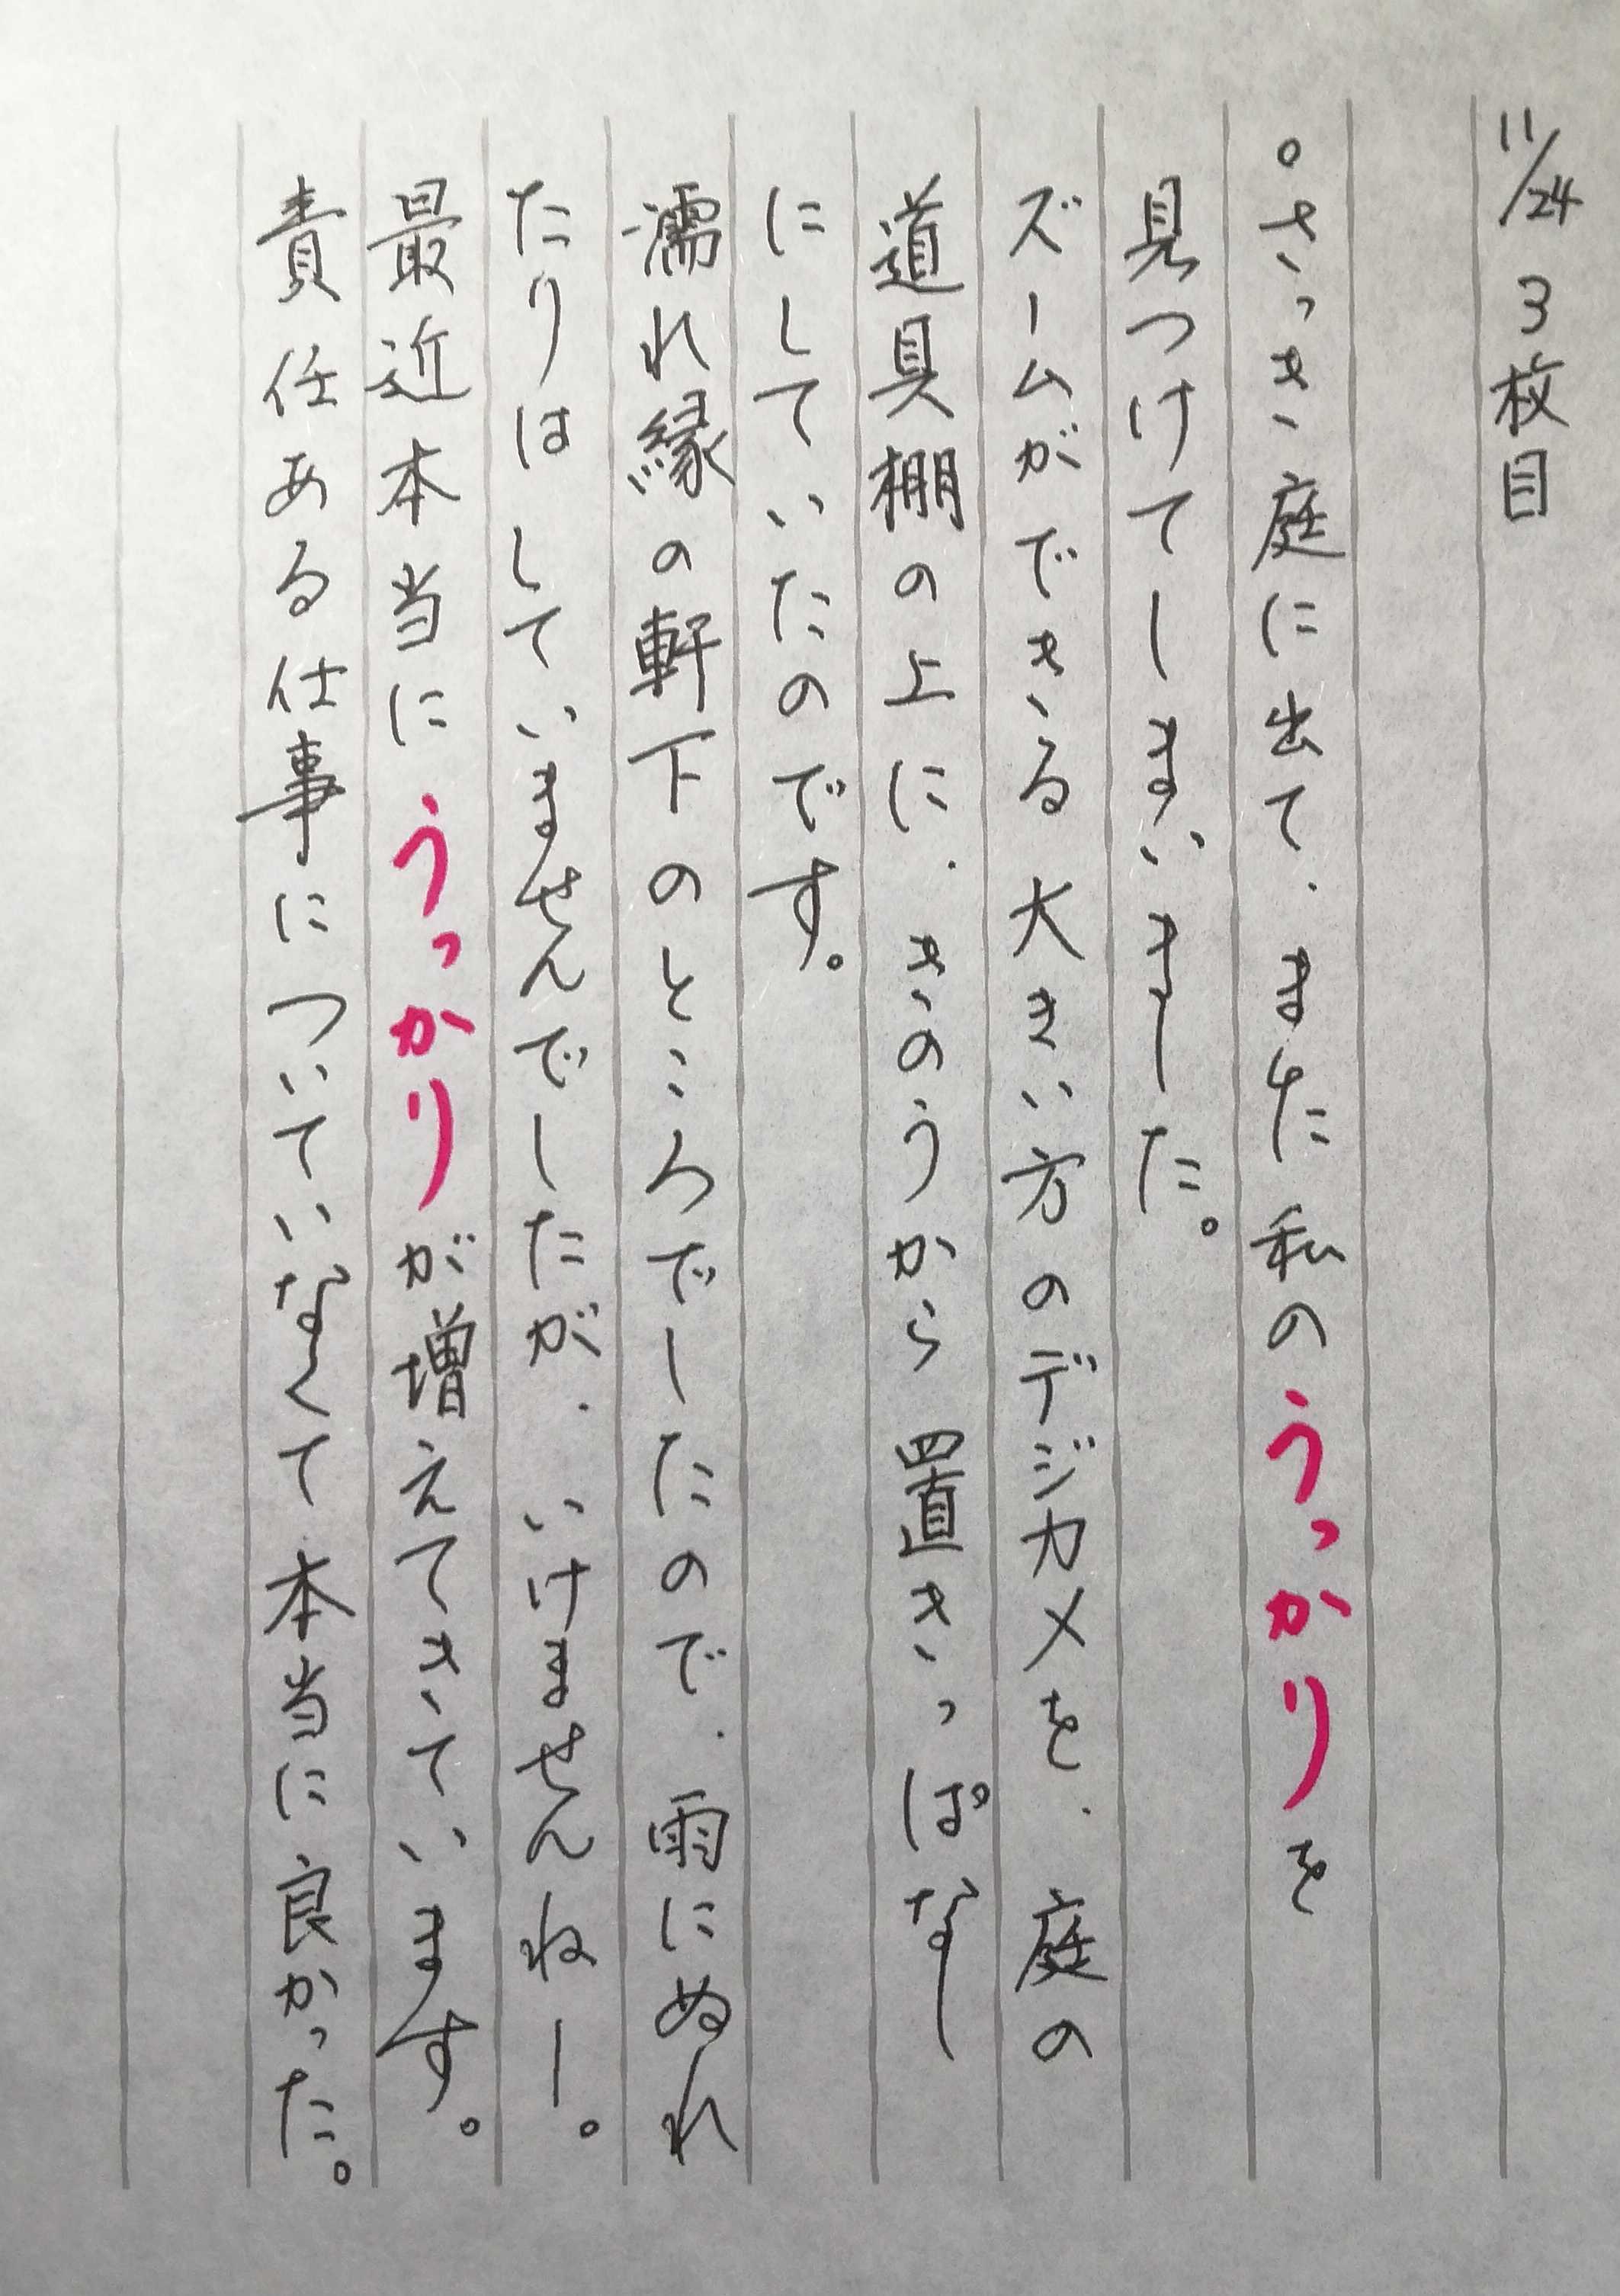 11/24 3枚目
。さっき庭に出て、また私のうっかりを
見つけてしまいました。
ズームができる大きい方のデジカメを、庭の
道具棚の上に、きのうから置きっぱなし
にしていたのです。
濡れ縁の軒下のところでしたので、雨にぬれ
たりはしていませんでしたが、いけませんねー。
最近本当にうっかりが増えてきています。
責任ある仕事についていなくて本当に良かった。